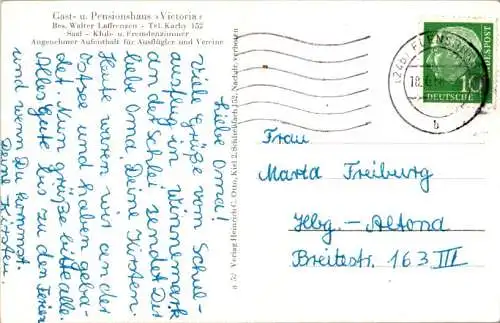 Gast- u. Pensionshaus »Victoria«
Bes. Walter Laffrenzen - Tel. Karby 152
Saal - Klub- u. Fremdenzimmer
Angenehmer Aufenthalt für Ausflügler und Vereine
Liebe Oma!
Viele Grüße vom Schul-
ausflug in Winnemark
an der Schlei sendet Dir
liebe Oma, Deine Kirsten.
Heute waren wir an der
Ostsee und haben geba-
det. Nun grüße bitte alle.
Alles Gute bis zu den Ferien
und wenn Du kommst.
Deine Kirsten.
Verlag Heinrich C. Otto, Kiel 2, Schließfach 152. Nachdr. verboten
(24b) FLENSBURG
b
DEUTSCHE
BUNDESPOST
10
Frau
Marta Freiburg
Hbg.- Altona
Breitestr. 163 III